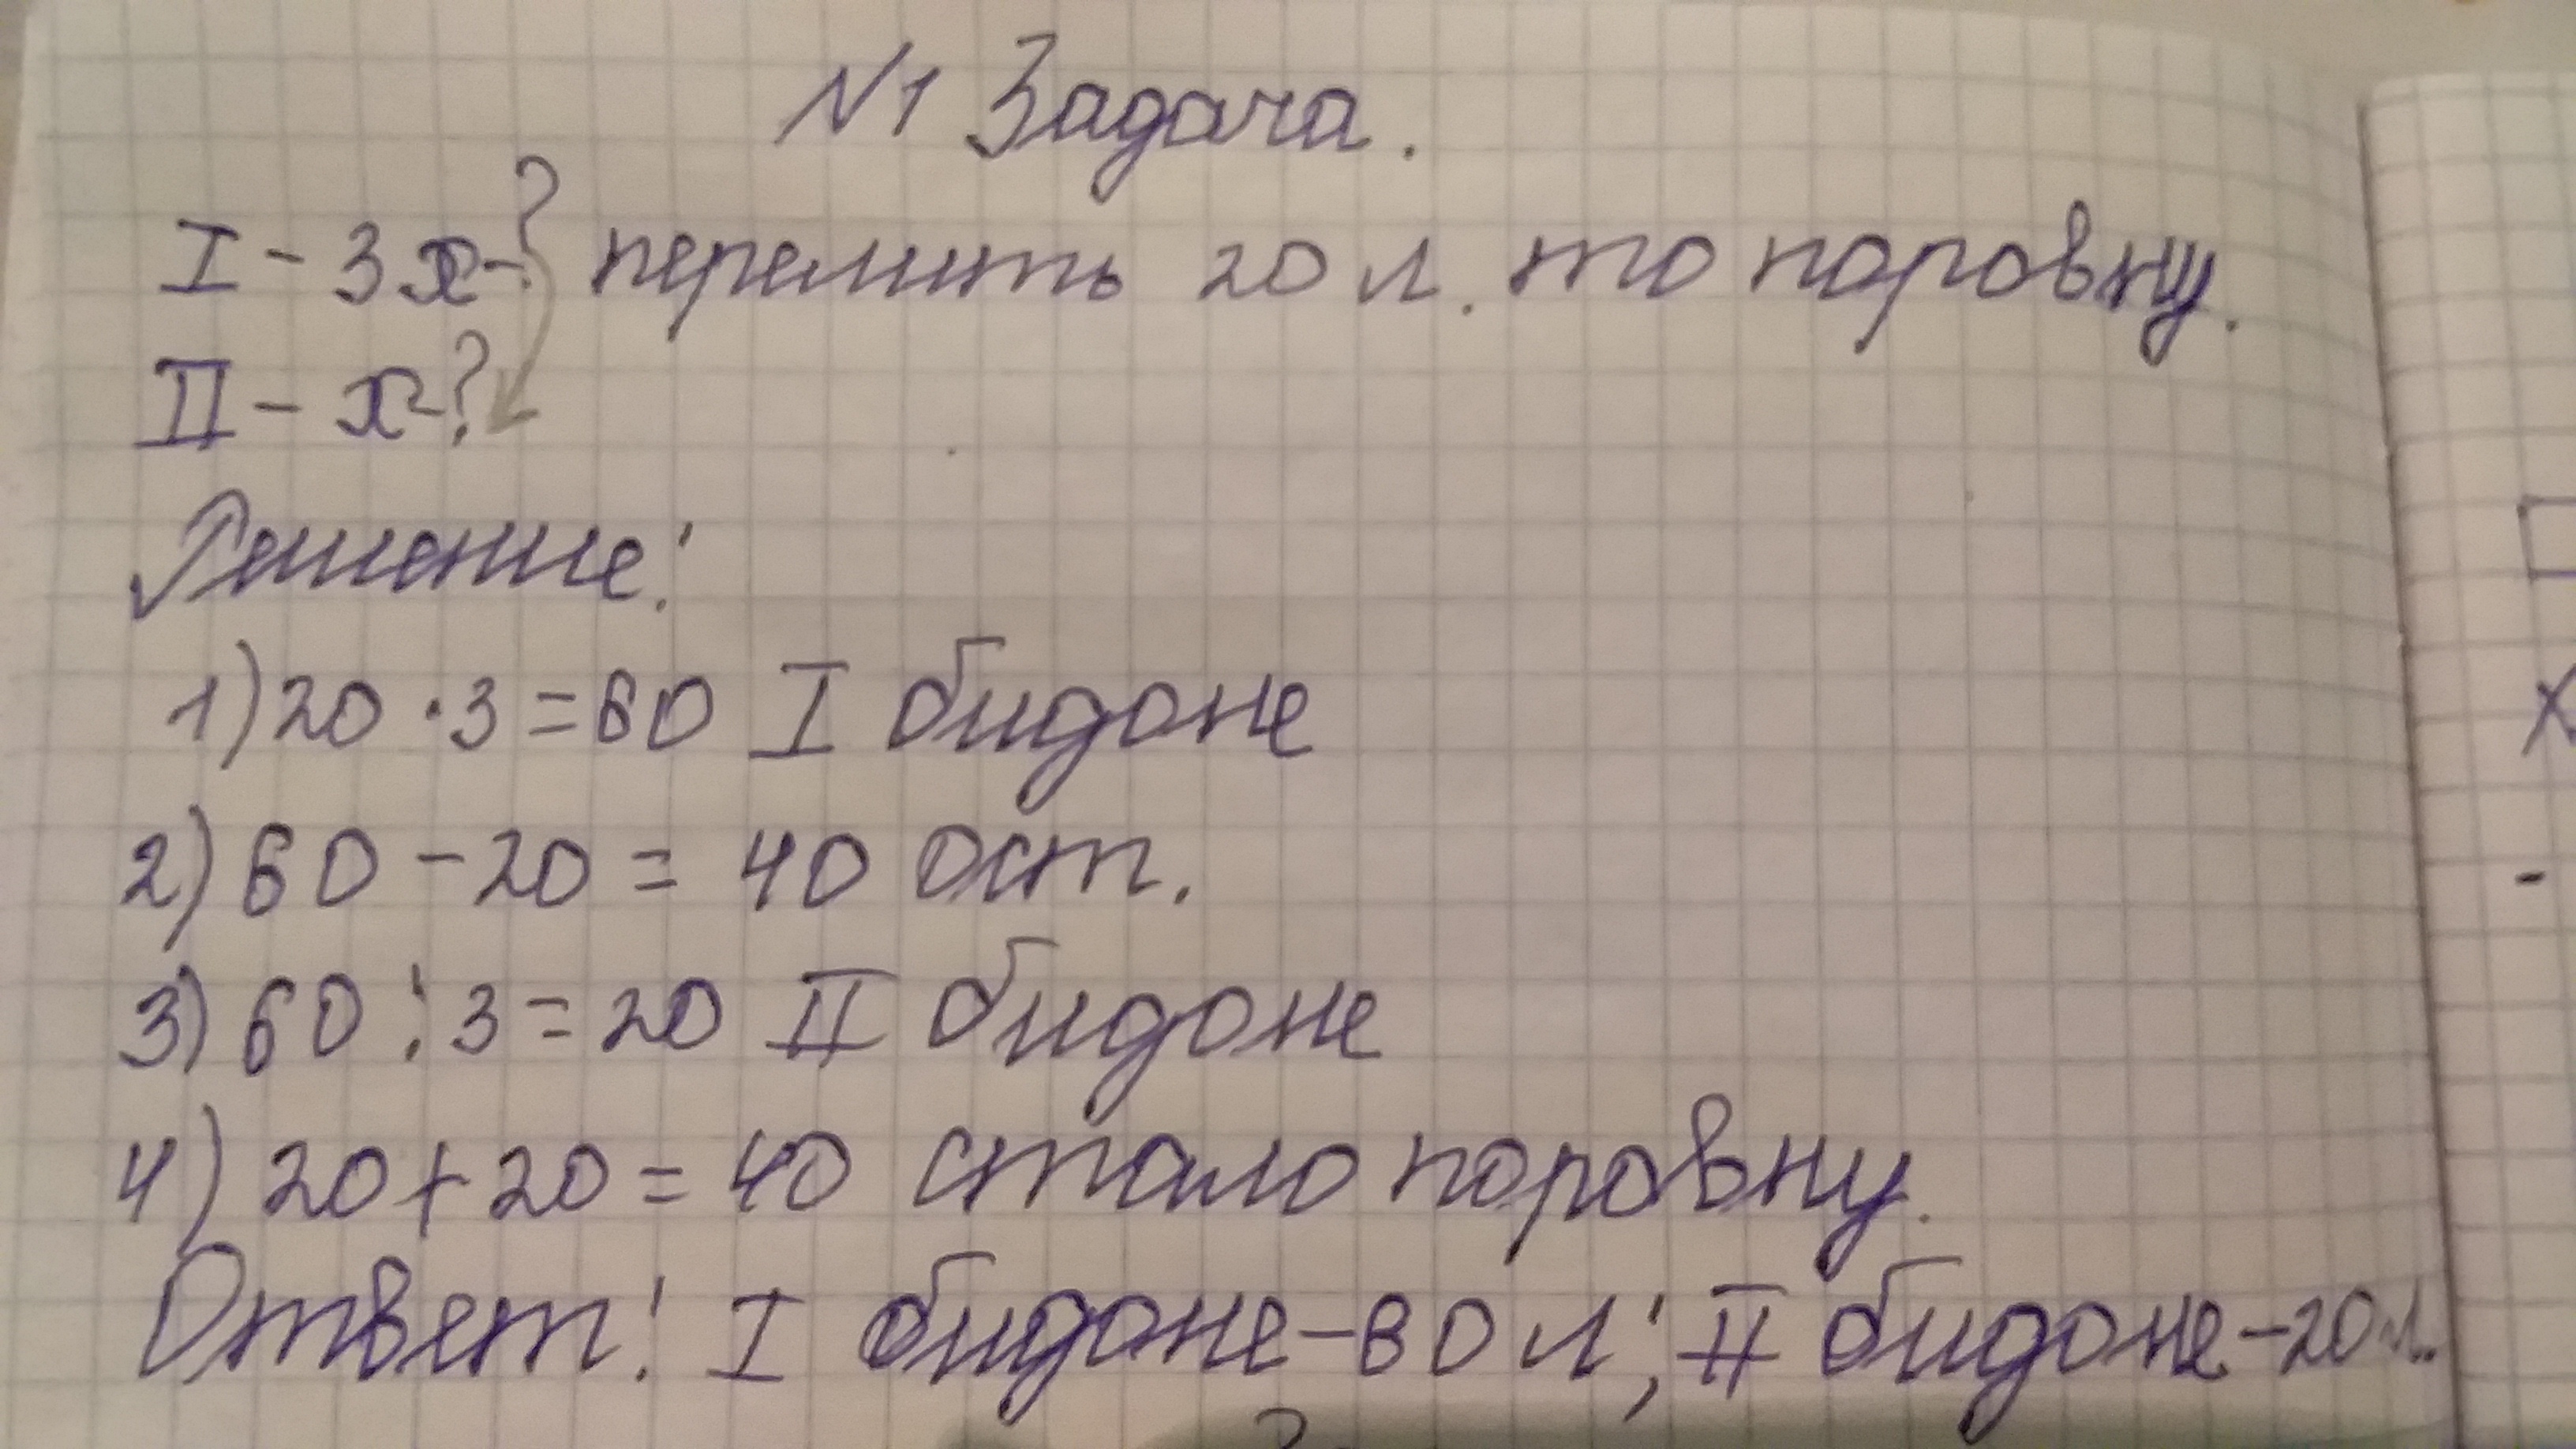 N1 Задача.
I - 3x-? перелить 20 л. то поровну.
II - x-?
Решение:
1) 20 · 3 = 60 I бидоне
2) 60 - 20 = 40 ост.
3) 60 : 3 = 20 II бидоне
4) 20 + 20 = 40 стало поровну.
Ответ: I бидоне - 60 л; II бидоне - 20 л.